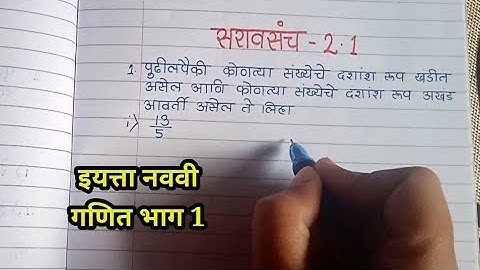 सरावसंच - 2.1
1. पुढीलपैकी कोणत्या संख्येचे दशांश रूप खंडीत
असेल आणि कोणत्या संख्येचे दशांश रूप अखंड
आवर्ती असेल ते लिहा
i) 13/5
इयत्ता नववी
गणित भाग 1